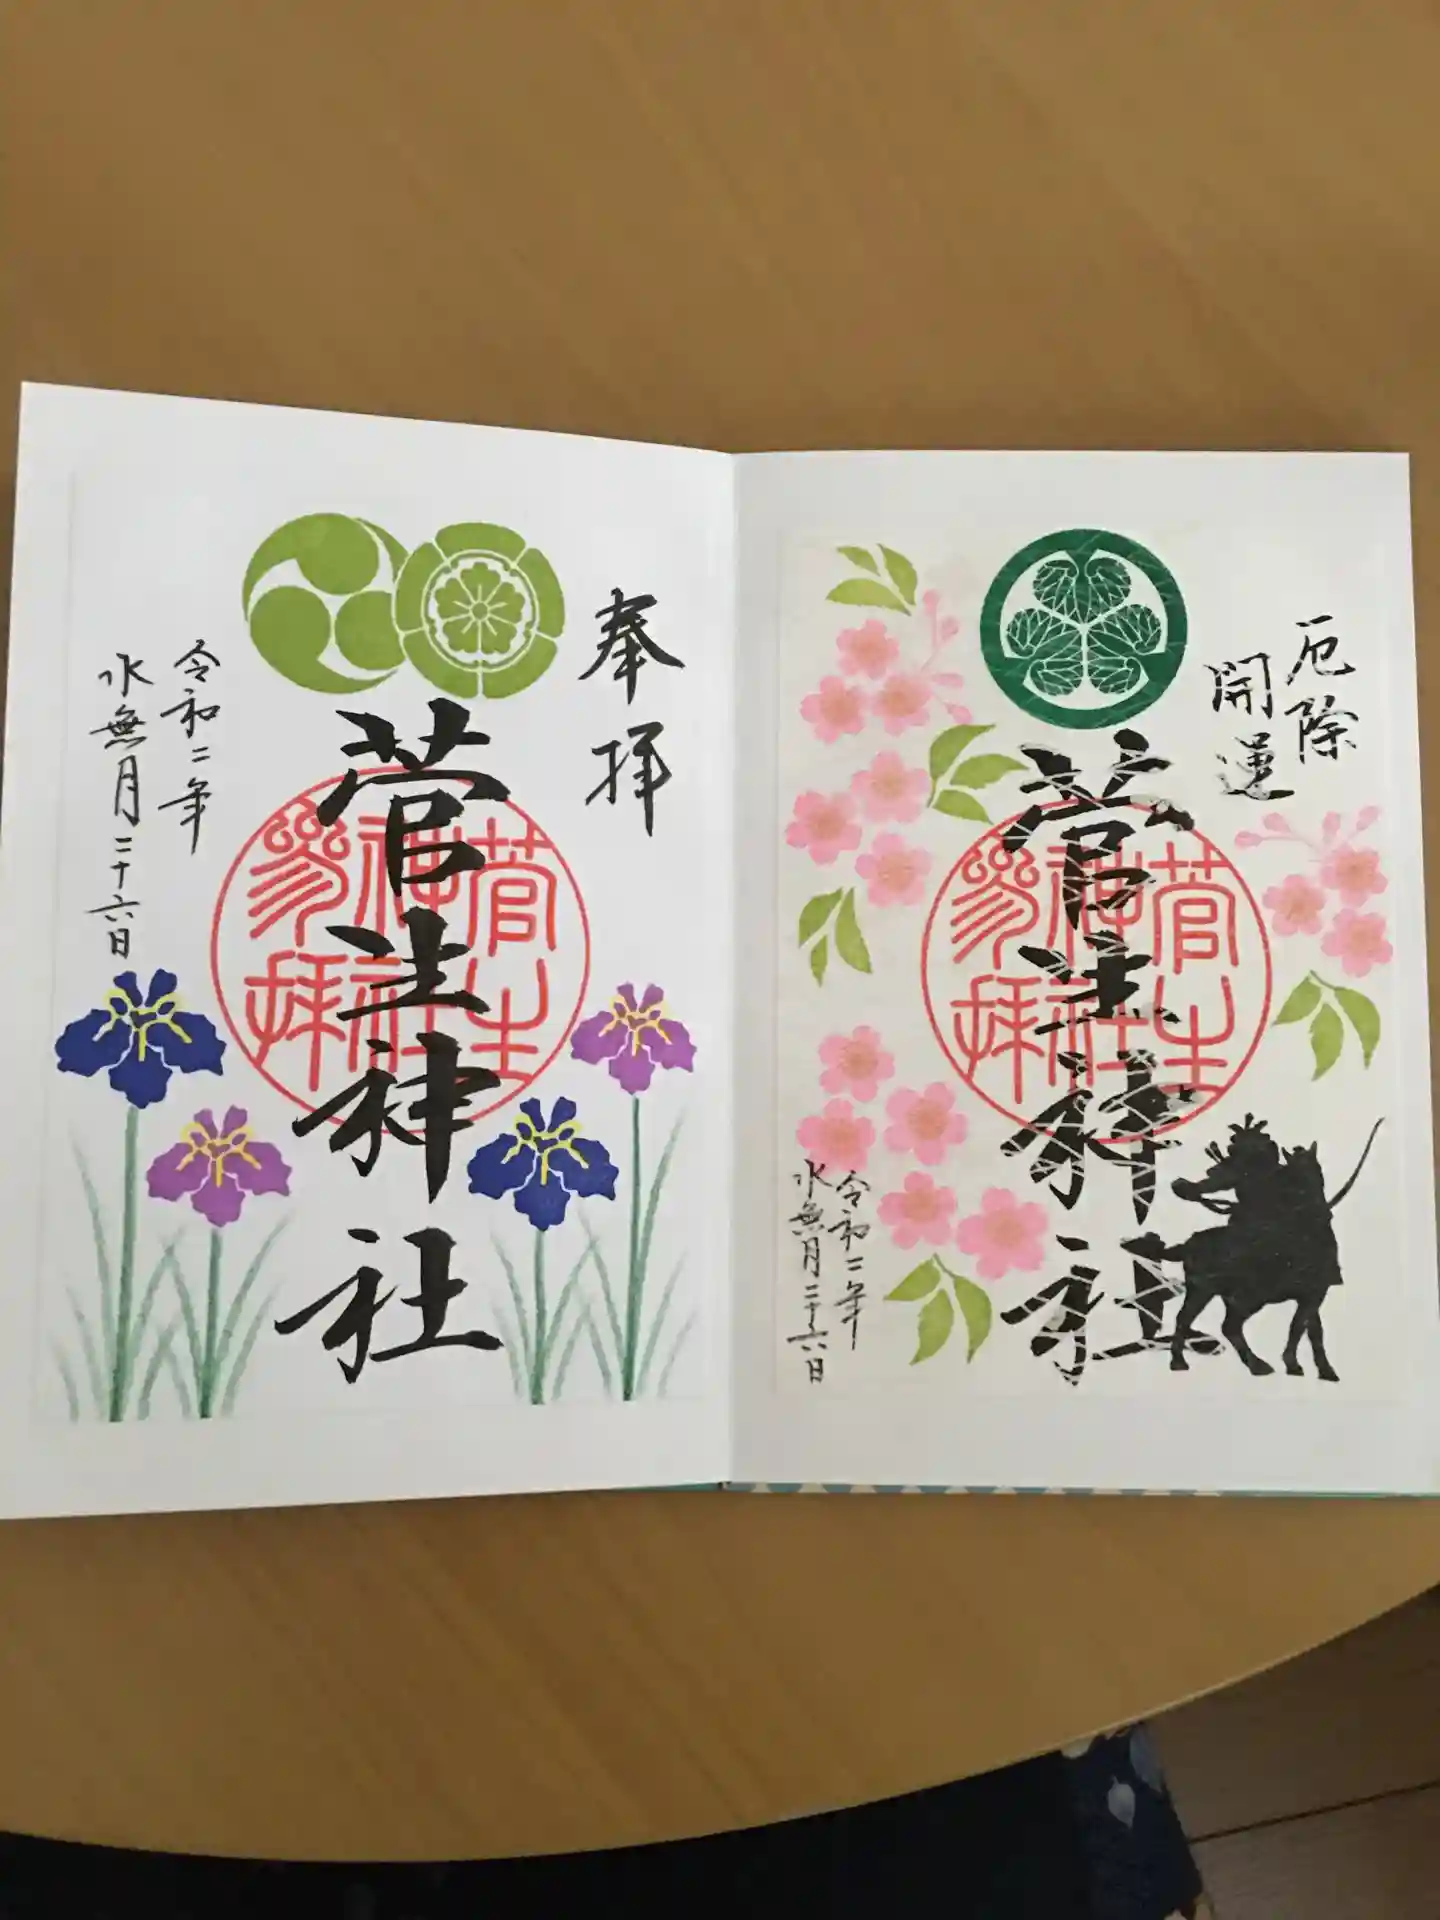 厄除
開運
菅生神社
菅生
神社
参拝
令和二年
水無月二十六日
奉拝
菅生神社
菅生
神社
参拝
令和二年
水無月二十六日